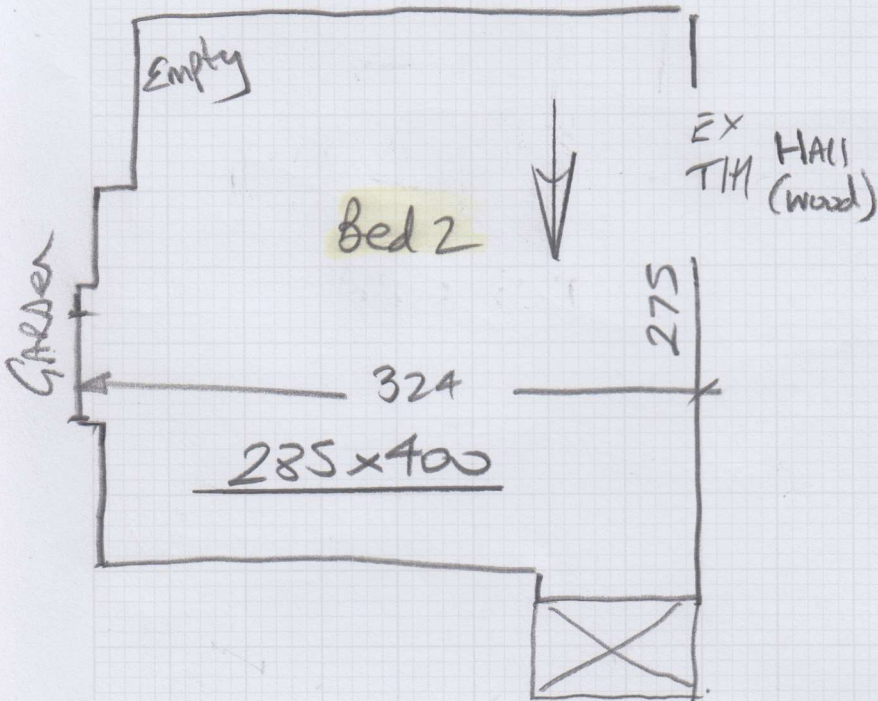 Empty
EX
T/H HALL
(wood)
Bed 2
GARDEN
275
324
285x400